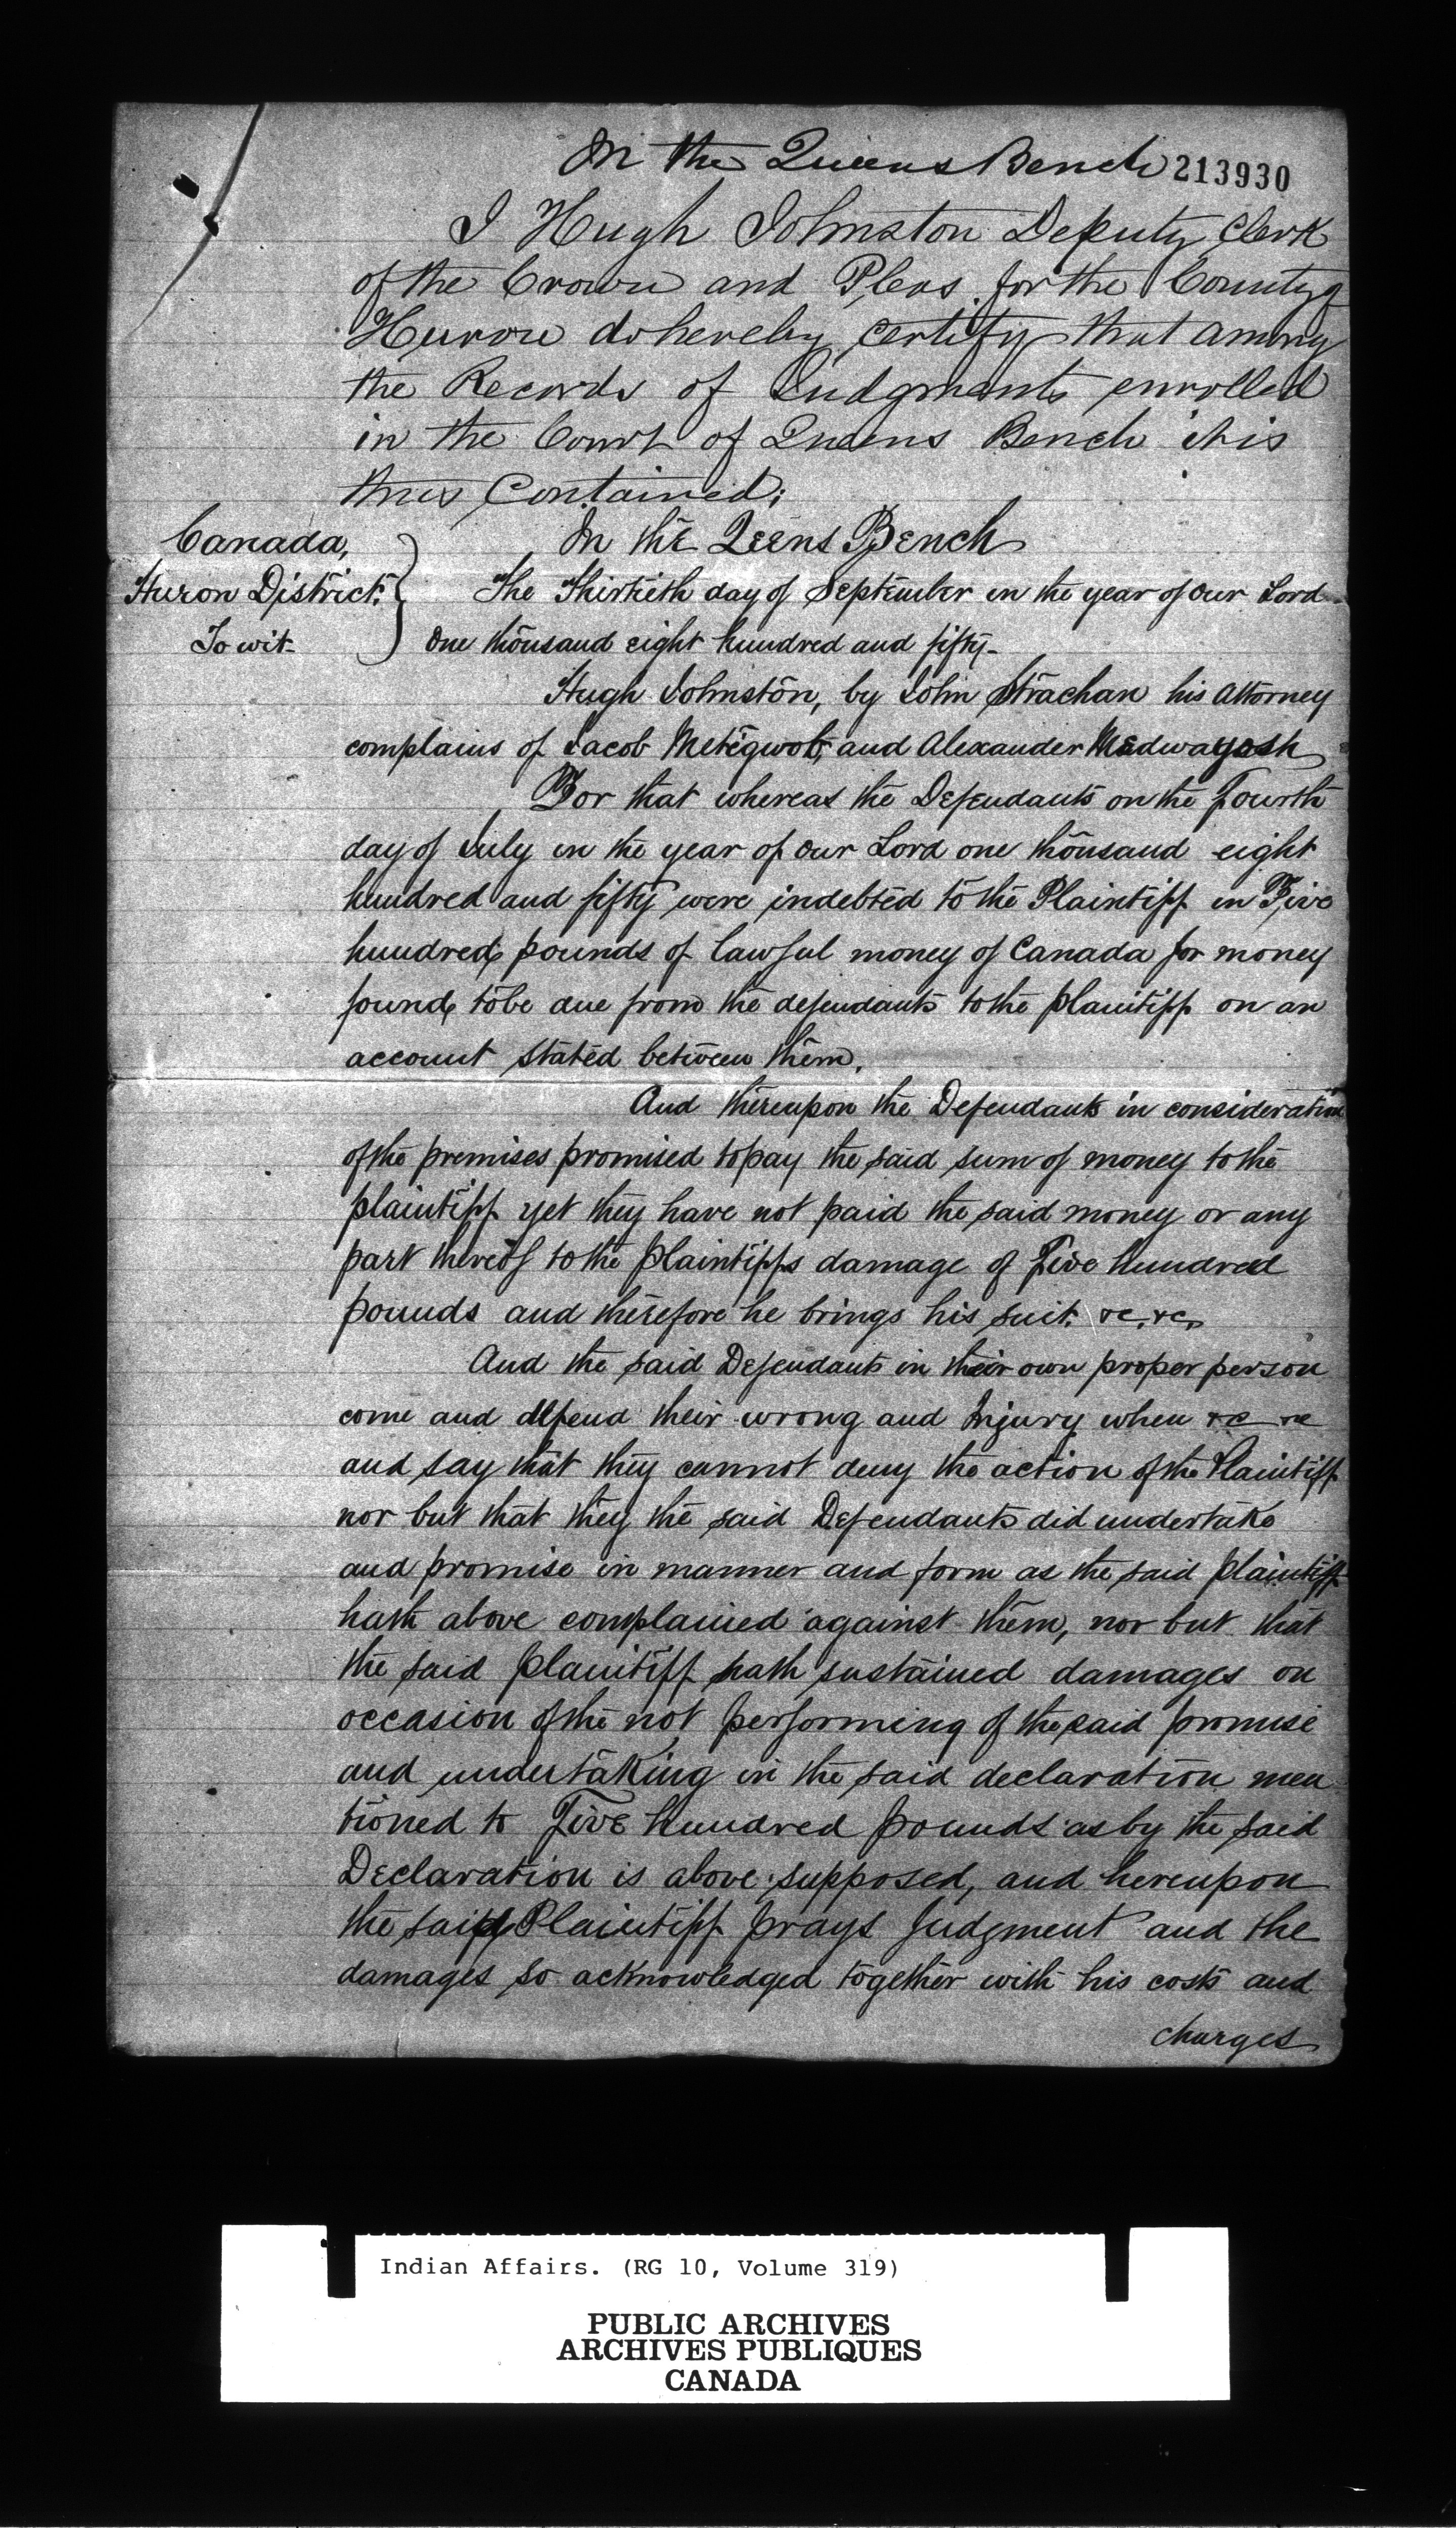 In the Queens Bench 213930
I Hugh Johnston Deputy Clerk
of the Crown and Pleas for the County of
Huron do hereby certify that among
the Records of Judgments enrolled
in the Court of Queens Bench it is
thus Contained;
Canada,
Huron District.
To wit
In the Qeens Bench
The Thirtieth day of September in the year of our Lord
One thousand eight hundred and fifty
Hugh Johnston, by John Strachan his attorney
complains of Jacob Metegwob, and Alexander Madwayosh
For that whereas the Defendants on the Fourth
day of July in the year of our Lord one thousand eight
hundred and fifty were indebted to the Plaintiff in Five
hundred pounds of lawful money of Canada for money
found to be due from the defendants to the plaintiff on an
account stated between them.
And thereupon the Defendants in consideration
of the premises promised to pay the said sum of money to the
plaintiff yet they have not paid the said money or any
part thereof to the plaintiffs damage of Five hundred
pounds and therefore he brings his suit. &c. &c.
And the said Defendants in their own proper person
come and defend their wrong and Injury when &c &c
and say that they cannot deny the action of the Plaintiff
nor but that they the said Defendants did undertake
and promise in manner and form as the said plaintiff
hath above complained against them, nor but that
the said plaintiff hath sustained damages on
occasion of the not performing of the said promise
and undertaking in the said declaration men
tioned to Five hundred pounds as by the said
Declaration is above supposed, and hereupon
the said Plaintiff prays Judgment and the
damages so acknowledged together with his costs and
charges
Indian Affairs. (RG 10, Volume 319)
PUBLIC ARCHIVES
ARCHIVES PUBLIQUES
CANADA